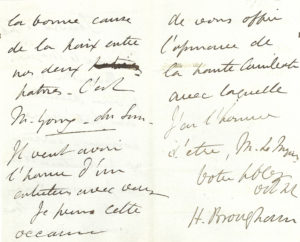 la bonne cause
de la paix entre
nos deux
patries - C'est
M. Young - du Sun -
Il veut avoir
l'honneur d'un
entretien avec vous
Je prens cette
occasion
de vous offrir
l'assurance de
la haute
avec laquelle
j'ai l'honneur
d'être, M. le
Votre
H. Brougham